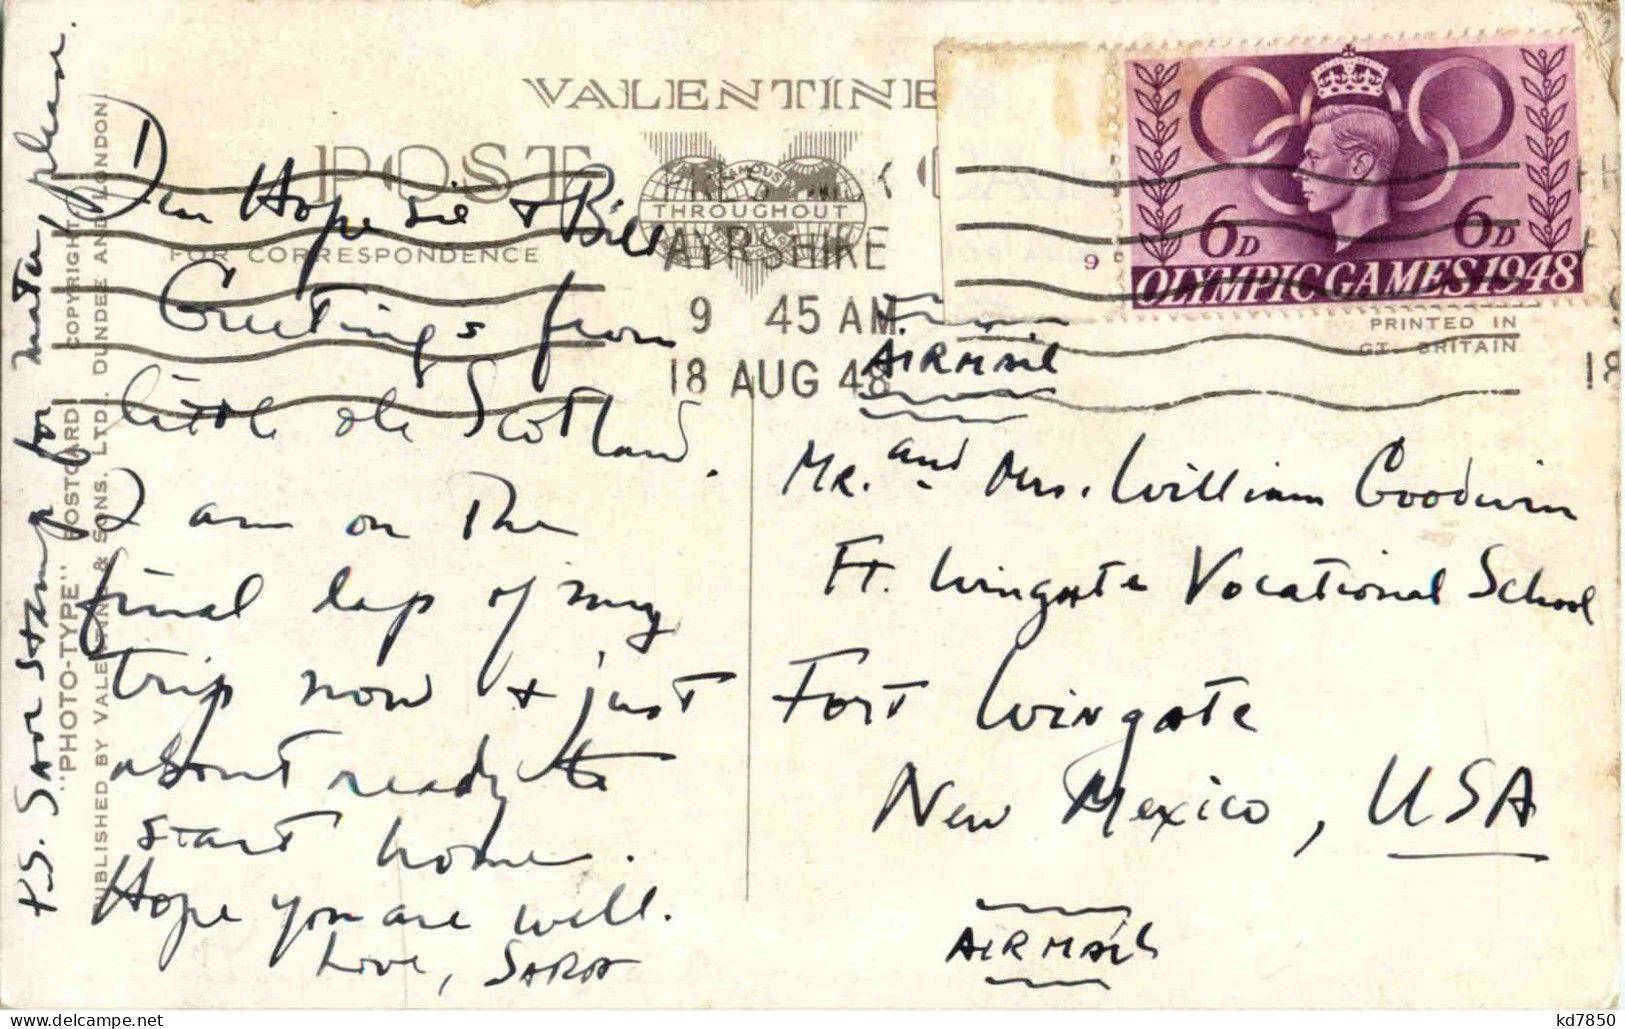 VALENTINE
POST
FAMOUS
THROUGHOUT
FOR CORRESPONDENCE
AYRSHIRE
9 45 AM
18 AUG 48
6D 6D
OLYMPIC GAMES 1948
9
PRINTED IN
GT. BRITAIN
18
Dear Hopesie + Bill
Greetings from
little ole Scotland.
I am on the
final lap of my
trip now + just
about ready to
start home.
Hope you are well.
Love, SARA
P.S. Save stamp for mater, please.
"PHOTO-TYPE" POSTCARD. COPYRIGHT
PUBLISHED BY VALENTINE & SONS, LTD., DUNDEE AND LONDON
AIRMAIL
MR. and Mrs. William Goodwin
Ft. Wingate Vocational School
Fort Wingate
New Mexico, USA
AIRMAIL
kd7850